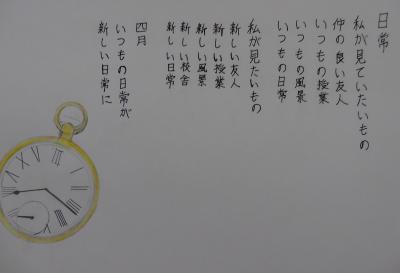 日常
私が見ていたいもの
仲の良い友人
いつもの授業
いつもの風景
いつもの日常
私が見たいもの
新しい友人
新しい授業
新しい風景
新しい校舎
新しい日常
四月
いつもの日常が
新しい日常に